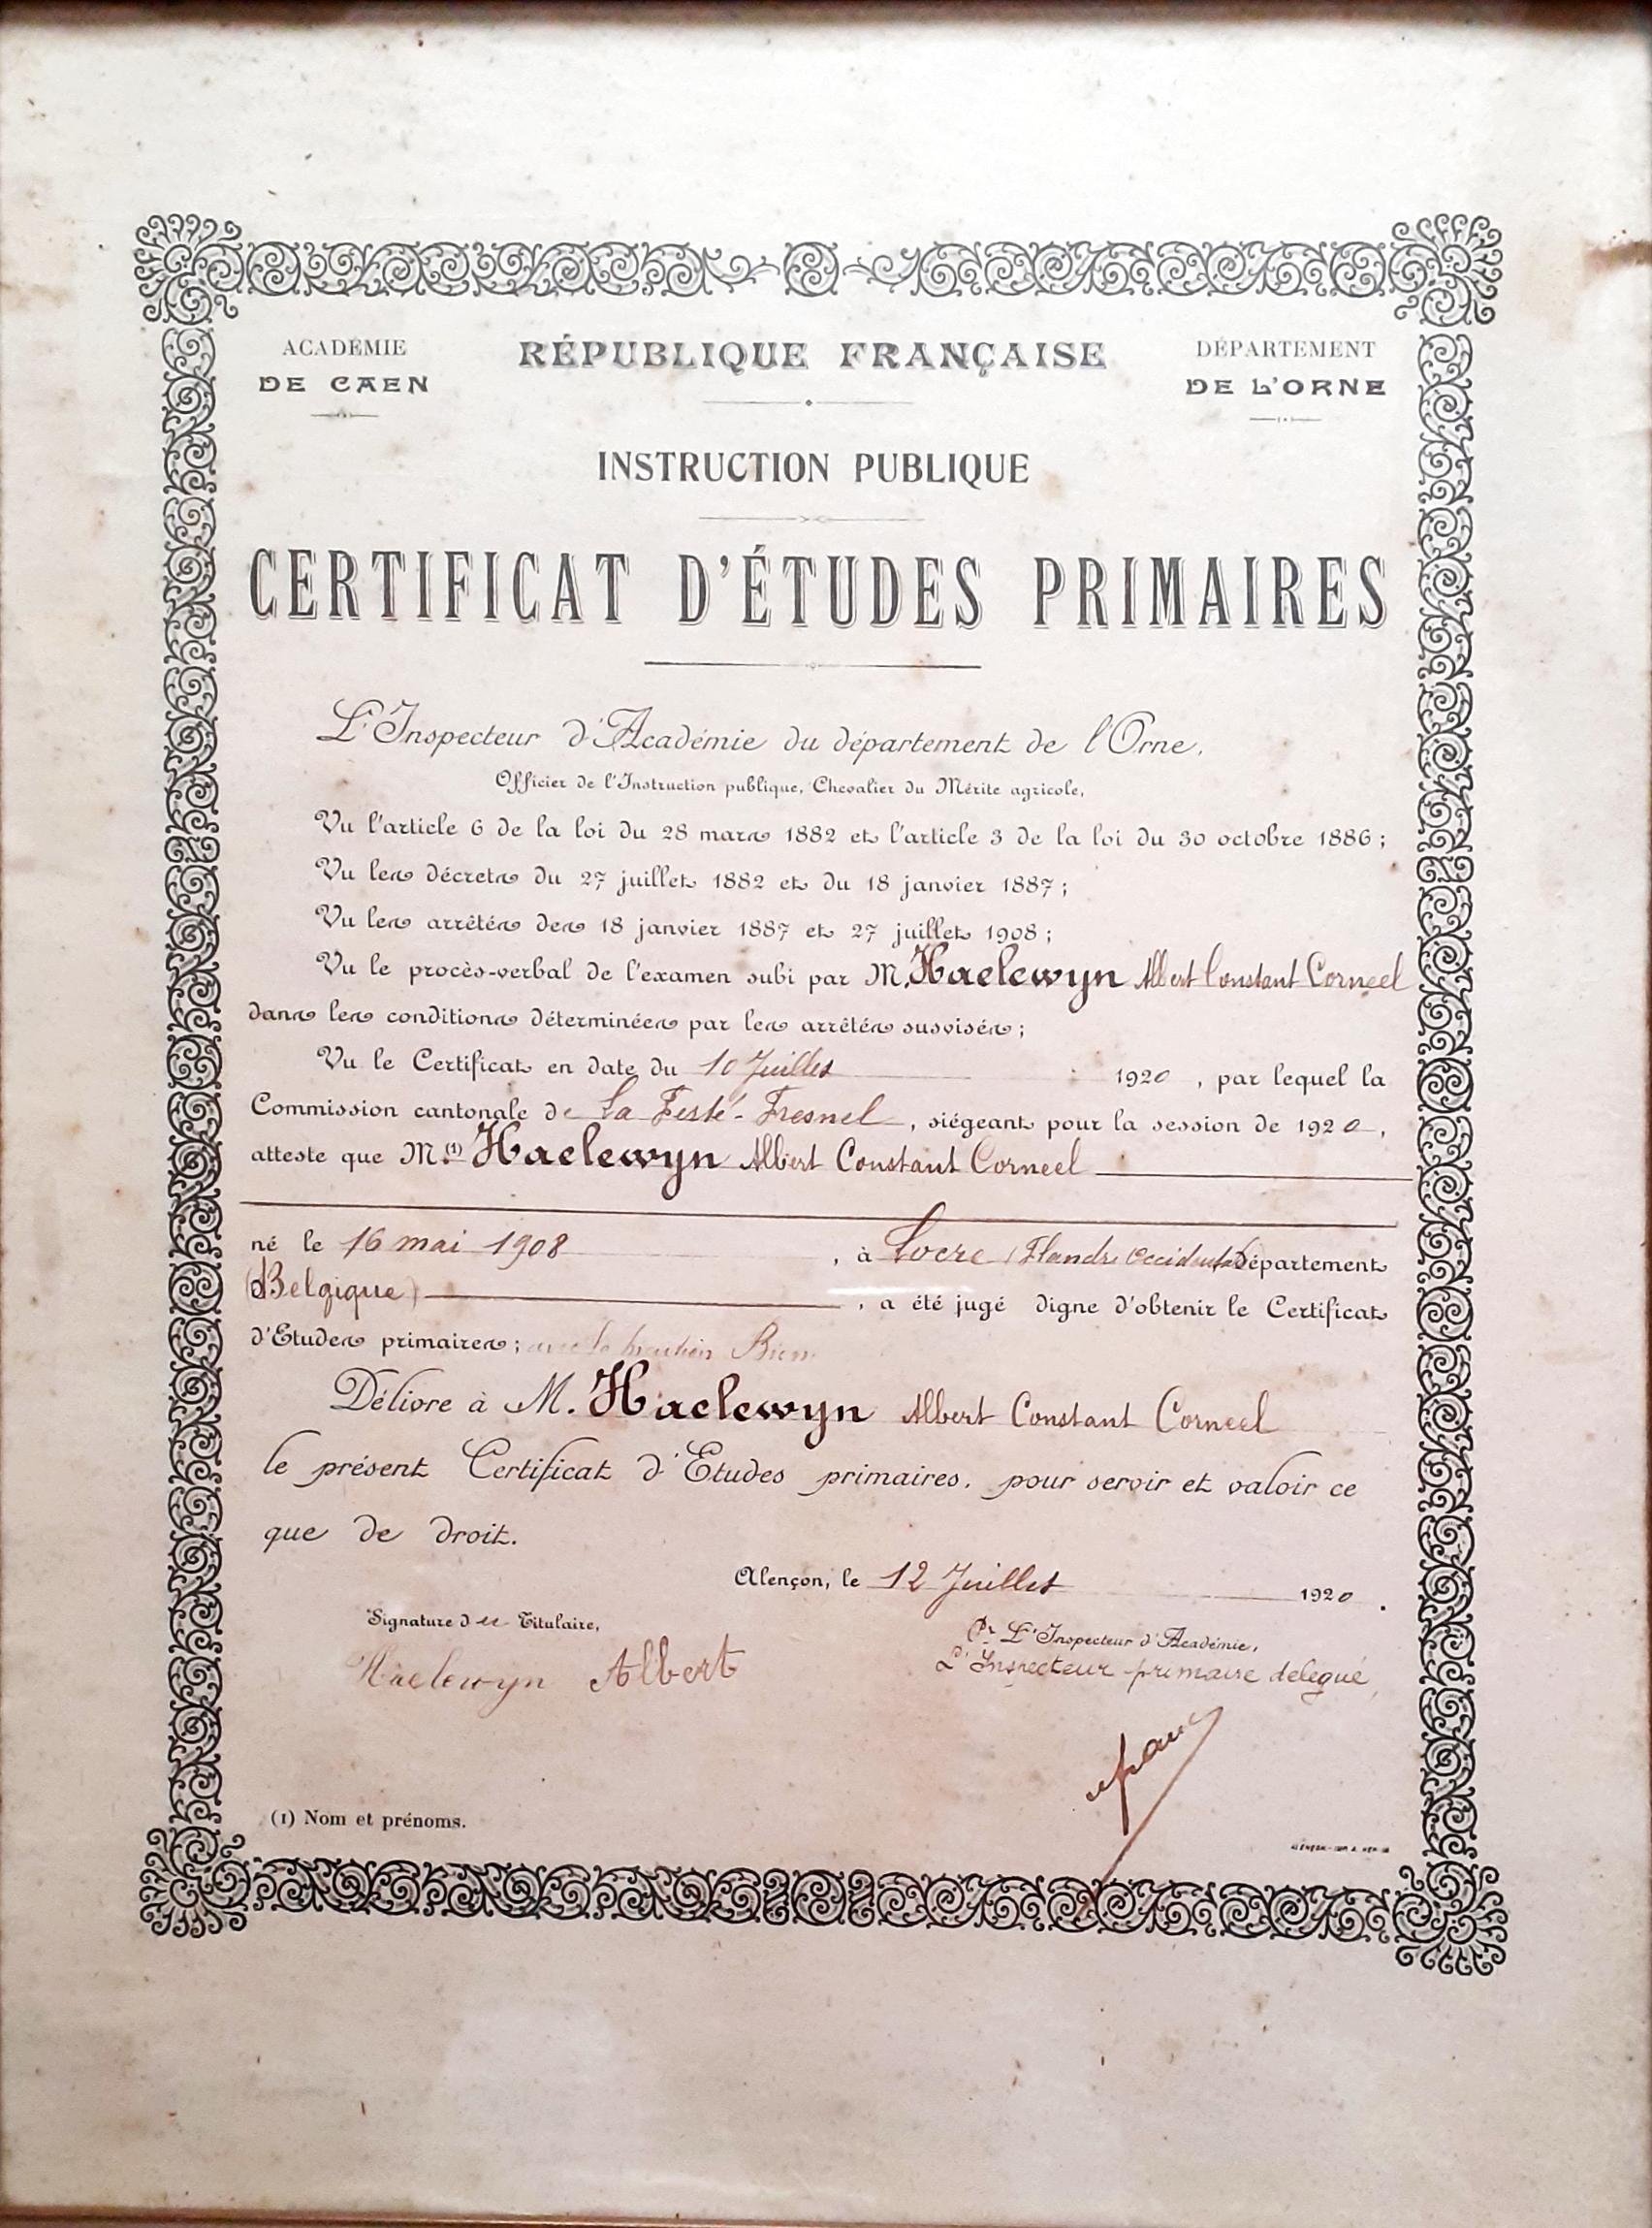 ACADÉMIE
DE CAEN
RÉPUBLIQUE FRANÇAISE
DÉPARTEMENT
DE L'ORNE
INSTRUCTION PUBLIQUE
CERTIFICAT D'ÉTUDES PRIMAIRES
L'Inspecteur d'Académie du département de l'Orne,
Officier de l'Instruction publique, Chevalier du Mérite agricole,
Vu l'article 6 de la loi du 28 mars 1882 et l'article 3 de la loi du 30 octobre 1886 ;
Vu les décrets du 27 juillet 1882 et du 18 janvier 1887 ;
Vu les arrêtés des 18 janvier 1887 et 27 juillet 1908 ;
Vu le procès-verbal de l'examen subi par M. Haelewyn Albert Constant Corneel
dans les conditions déterminées par les arrêtés susvisés ;
Vu le Certificat en date du 10 Juillet 1920 , par lequel la
Commission cantonale de La Ferté-Fresnel , siégeant pour la session de 1920 ,
atteste que M. (1) Haelewyn Albert Constant Corneel
né le 16 mai 1908 , à Locre (Flandre Occidentale) Département
d (Belgique) , a été jugé digne d'obtenir le Certificat
d'Etudes primaires ; avec la mention Bien
Délivre à M. Haelewyn Albert Constant Corneel
le présent Certificat d'Etudes primaires, pour servir et valoir ce
que de droit.
Alençon, le 12 Juillet 1920 .
Signature du Titulaire,
Haelewyn Albert
Pr L'Inspecteur d'Académie,
L'Inspecteur primaire délégué,
(1) Nom et prénoms.